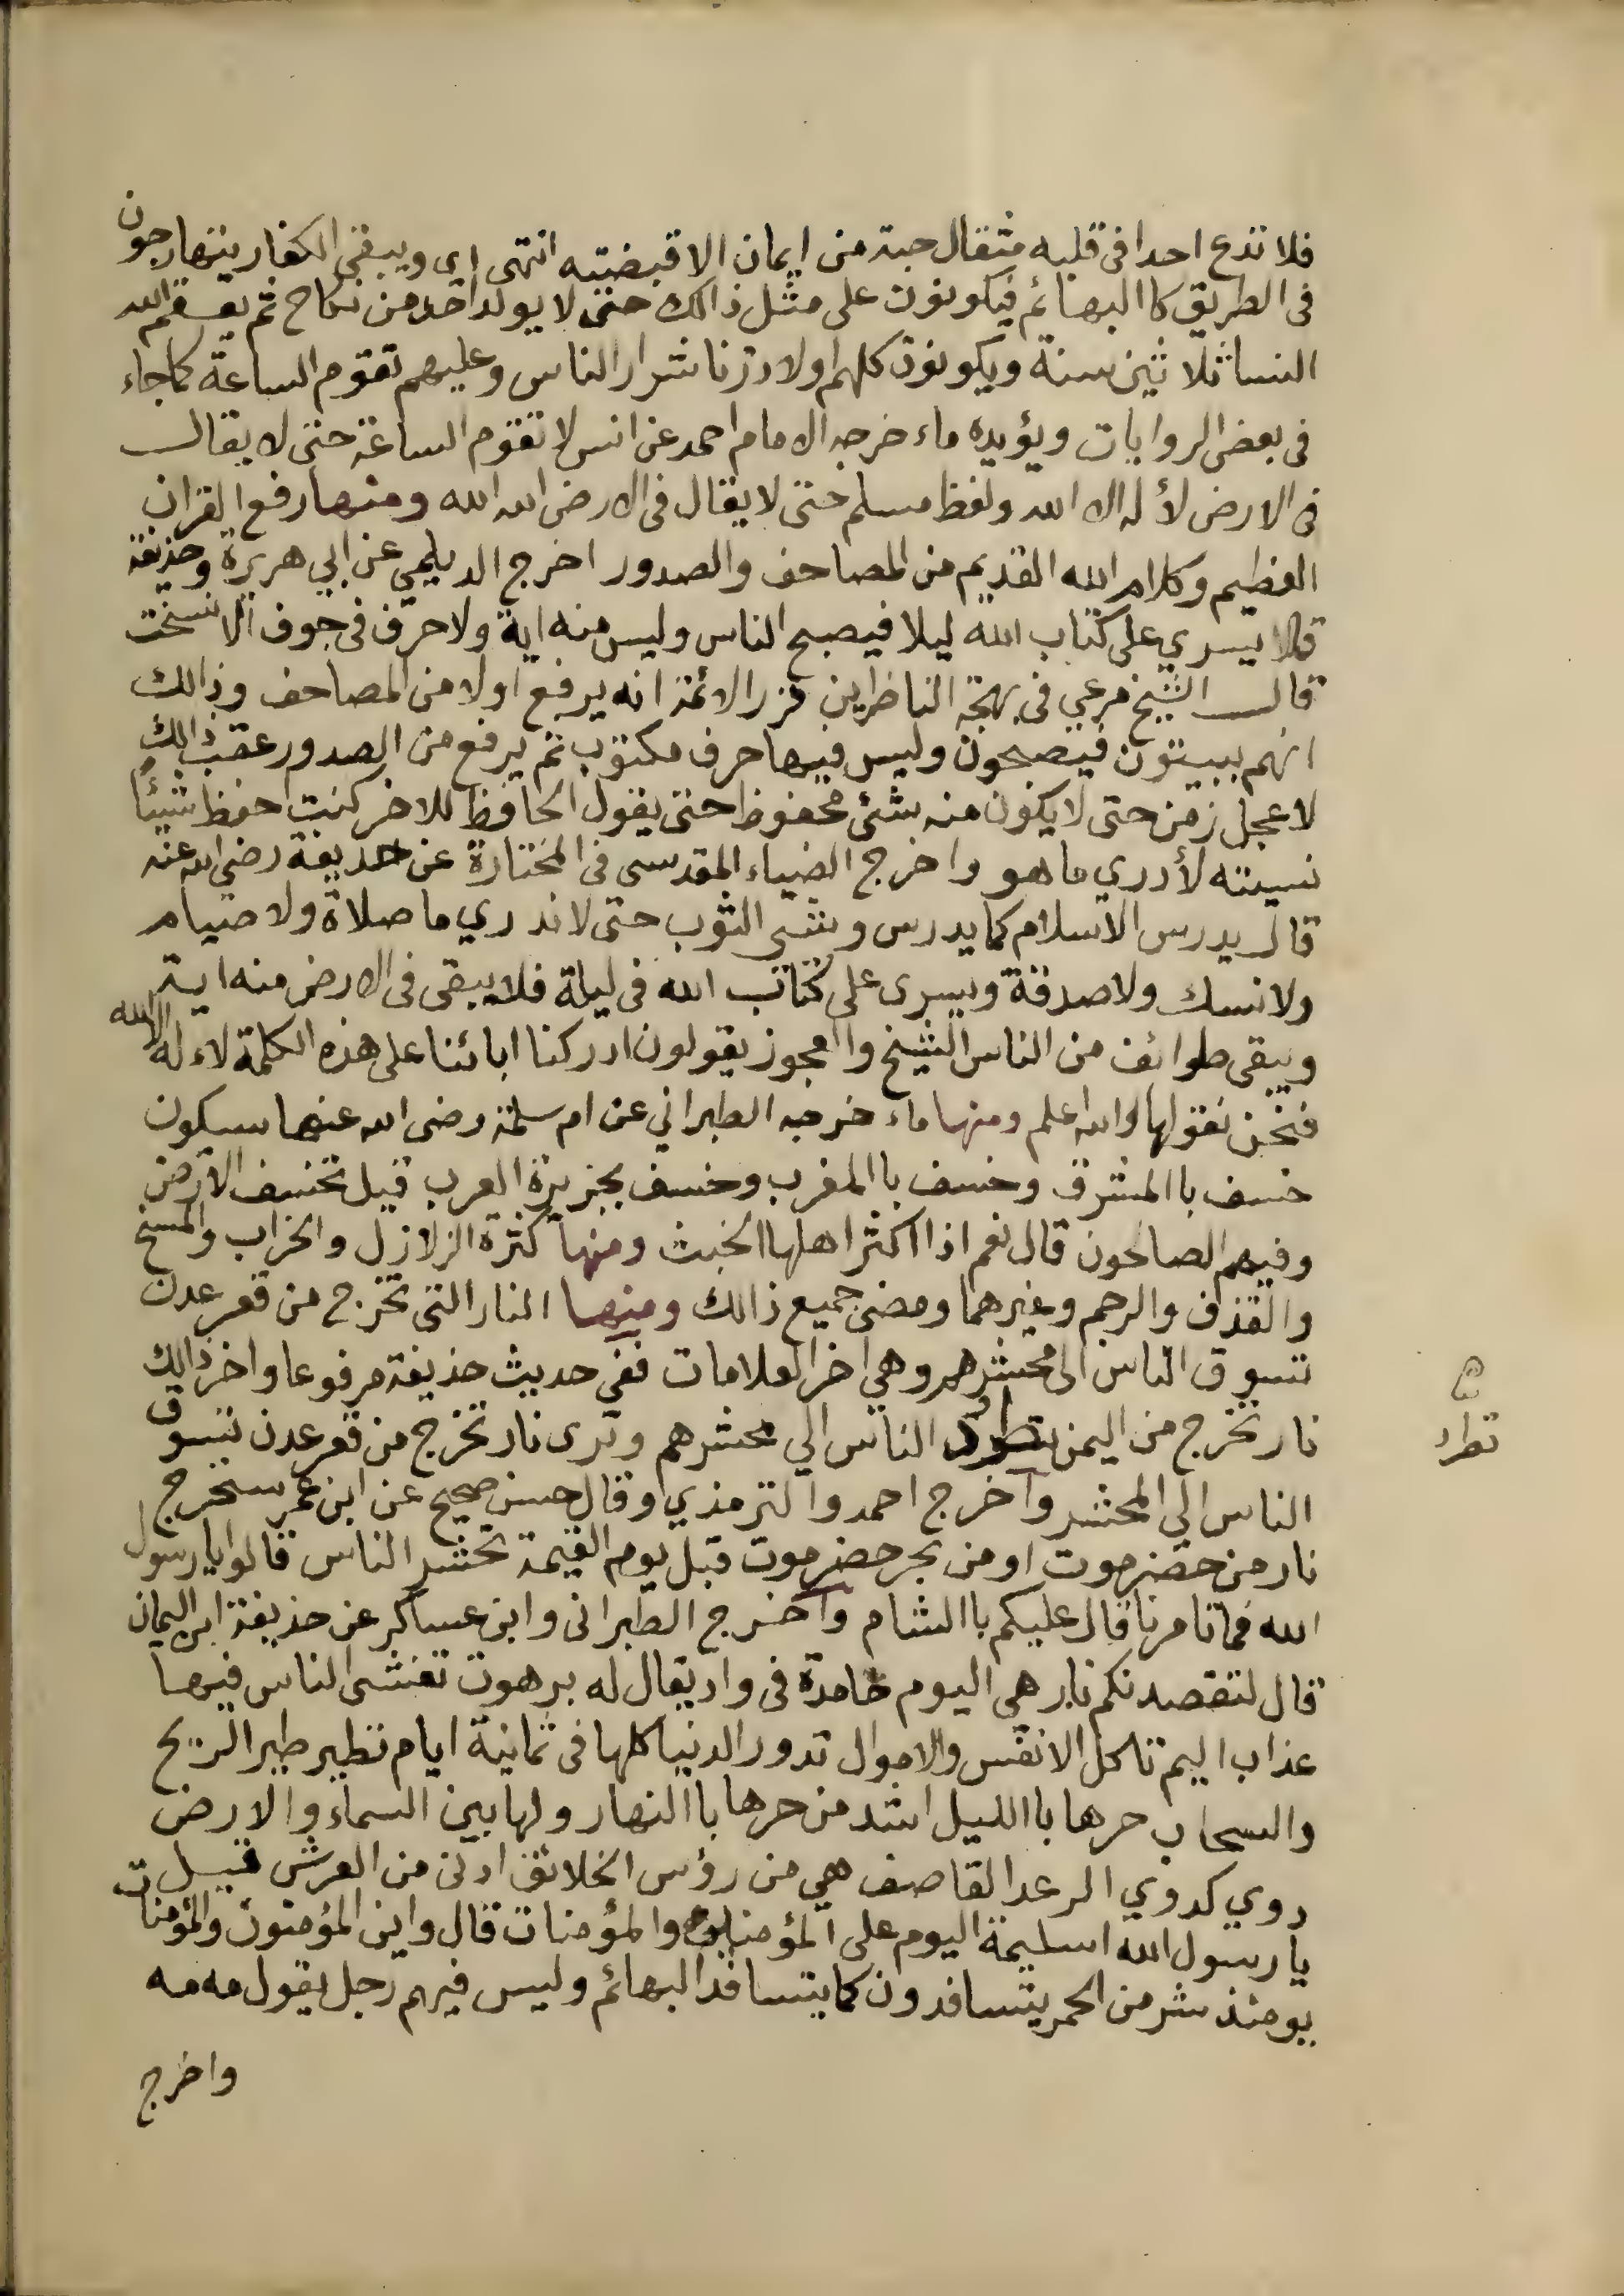 فلا تدع احدا فى قلبه مثقال حبة من ايمان الا قبضته انتهى اي ويبقى الكفار يتهارجون
فى الطريق كا البهائم فيكونون على مثل ذالك حتى لا يولد احد من نكاح ثم يعقم الله
النسا ثلاثين سنة ويكونون كلهم اولاد زنا شرار الناس وعليهم تقوم الساعة كما جاء
فى بعض الروايات ويؤيده ماء خرجه الامام احمد عن انس لا تقوم الساعة حتى لا يقال
فى الارض لأ له الا الله ولفظ مسلم حتى لا يقال فى الارض الله الله ومنها رفع القران
العظيم وكلام الله القديم من المصاحف والصدور اخرج الديلمي عن ابي هريرة وحذيفة
قالا يسري على كتاب الله ليلا فيصبح الناس وليس منه اية ولا حرف فى جوف الا نسخت
قال الشيخ مرعي فى بهجة الناظرين قرر الائمة انه يرفع اولا من المصاحف وذالك
انهم يبيتون فيصبحون وليس فيها حرف مكتوب ثم يرفع من الصدور عقب ذالك
لا عجل زمن حتى لا يكون منه شئ محفوظ حتى يقول الحافظ للاخر كنت احفظ شيئا
نسيته لأدري ما هو واخرج الضياء المقدسى فى المختارة عن حذيفة رضى الله عنه
قال يدرس الاسلام كما يدرس وشى الثوب حتى لا ندري ما صلاة ولا صيام
ولا نسك ولا صدقة ويسرى على كتاب الله فى ليلة فلا يبقى فى الارض منه اية
ويبقى طوائف من الناس الشيخ والعجوز يقولون ادركنا ابائنا على هذه الكلمة لاء له الا الله
فنحن نقولها والله اعلم ومنها ماء خرجه الطبراني عن ام سلمة رضى الله عنها سيكون
خسف با المشرق وخسف با المغرب وخسف بجزيرة العرب قيل تخسف الارض
وفيهم الصالحون قال نعم اذا اكثر اهلها الخبث ومنها كثرة الزلازل والخراب والمسخ
والقذف والرجم وغيرهما ومضى جميع ذالك ومنها النار التى تخرج من قعر عدن
تسوق الناس الى محشرهم وهي اخر العلامات ففي حديث حذيفة مرفوعا واخر ذالك
نار تخرج من اليمن تطرد الناس الي محشرهم وترى نار تخرج من قعر عدن تسوق
الناس الي المحشر واخرج احمد والترمذي وقال حسن صحيح عن ابن عمر ستخرج
نار من حضرموت او من بحر حضرموت قبل يوم القيمة تحشر الناس قالوا يا رسول
الله فما تامرنا قال عليكم با الشام واخرج الطبرانى وابن عساكر عن حذيفة ابن اليمان
قال لتقصدنكم نار هي اليوم خامدة فى واد يقال له برهوت تغشى الناس فيها
عذاب اليم تاكل الانفس والاموال تدور الدنيا كلها فى ثمانية ايام تطير طير الريح
والسحاب حرها با الليل اشد من حرها با النهار ولها بين السماء والارض
دوي كدوي الرعد القاصف هي من رؤس الخلائق ادنى من العرش قيل
يا رسول الله اسليمة اليوم على المؤمنين والمؤمنات قال واين المؤمنون والمؤمنات
يومئذ شر من الحمر يتسافدون كما يتسافد البهائم وليس فيهم رجل يقول مه مه
واخرج
تطرد